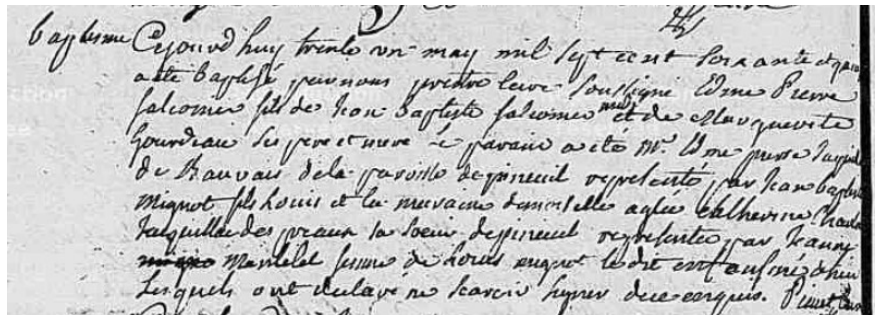 baptisme Cejourd huy trente un may mil sept cent soixante et quin
a été Baptisé par nous prêtre curé soussigné Edme Pierre
falconier fils de Jean Baptiste falconier et de Marguerite
Gourdeau ses pere et mere le parain a été Mr. Edme pierre
de Beauvais de la paroisse depineuil représenté par Jean baptiste
mignot fils Louis et la maraine demoiselle aglae Catherine
des preaux sa soeur depineuil representée par Jeanne
Mantelet femme de Louis mignot le dit enfant né d'hier
Lesquels ont declaré ne scavoir signer de ce enquis.